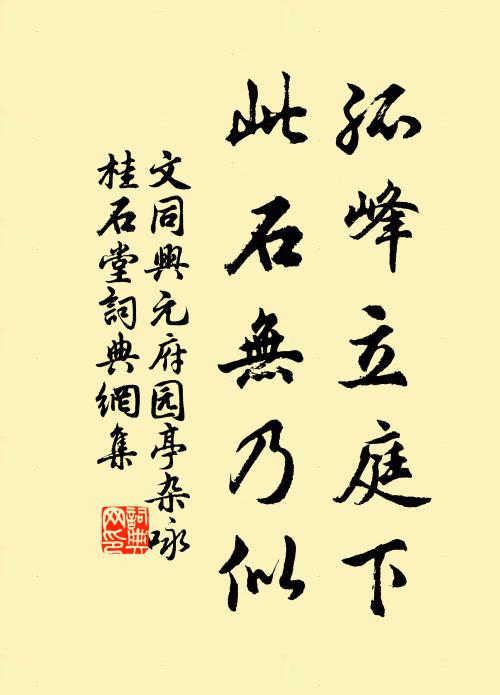 孤峰立庭下
此石無乃似
文同興元府园亭杂咏
桂石堂詞典網集
詞典網印